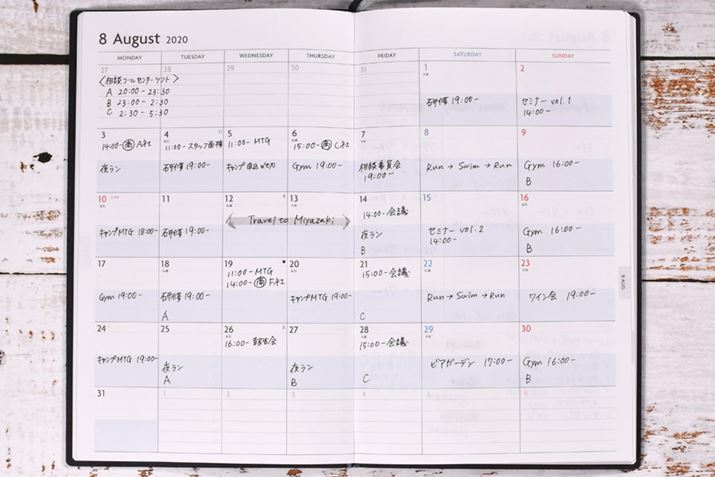 8 August 2020
MONDAY TUESDAY WEDNESDAY THURSDAY FRIDAY SATURDAY SUNDAY
27 28 29 30 31 1 2
〈相談コールセンターシフト〉
A 20:00-23:30
B 23:00-2:30
C 2:30-5:30
研修 19:00-
セミナー vol.1
14:00-
3 4 5 6 7 8 9
14:00- A社
夜ラン
11:00-スタッフ面接
研修 19:00-
11:00-MTG
キャンプ
15:00- C社
Gym 19:00-
相談委員会
19:00-
Run→Swim→Run
Gym 16:00-
B
10 11 12 13 14 15 16
キャンプMTG 18:00-
研修 19:00-
Travel to Miyazaki
14:00-会議
夜ラン
B
セミナー vol.2
14:00-
Gym 16:00-
B
17 18 19 20 21 22 23
Gym 19:00-
研修 19:00-
A
11:00-MTG
14:00- F社
キャンプMTG 19:00-
15:00-会議
C
Run→Swim→Run
ワイン会 19:00-
8 AUG
24 25 26 27 28 29 30
キャンプMTG 19:00-
夜ラン
A
16:00-
夜ラン
B
15:00-会議
C
ビアガーデン 17:00-
Gym 16:00-
B
31 1 2 3 4 5 6